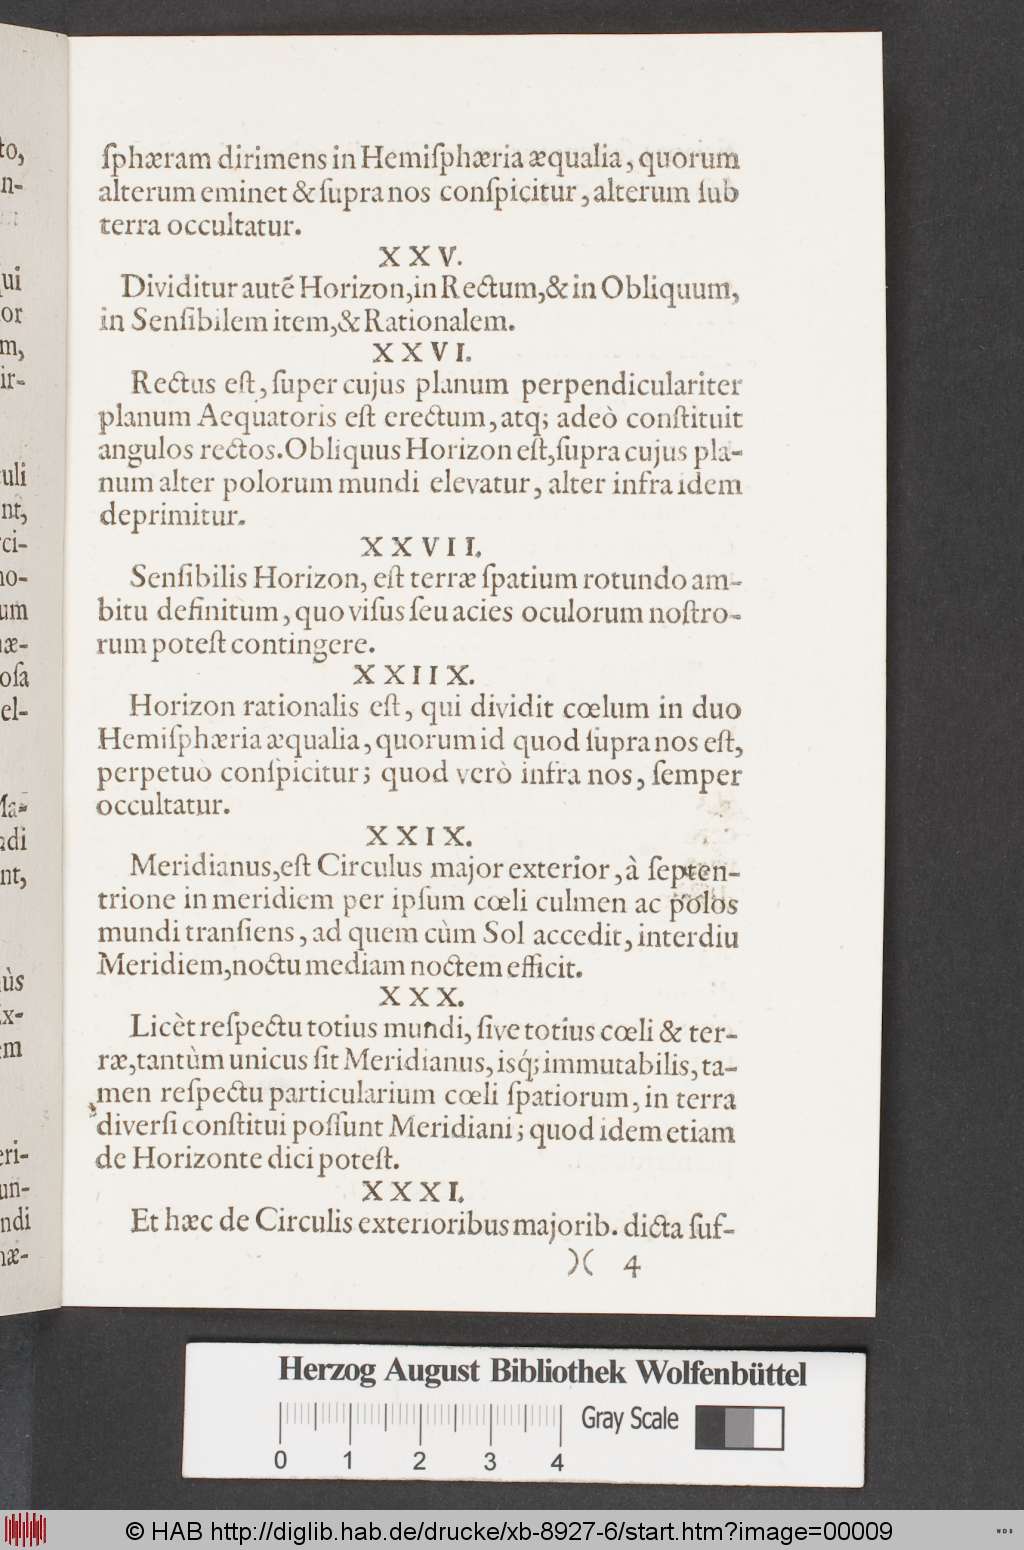 ſphæram dirimens in Hemiſphæria æqualia, quorum
alterum eminet & ſupra nos conſpicitur, alterum ſub
terra occultatur.
X X V.
Dividitur autē Horizon, in Rectum, & in Obliquum,
in Senſibilem item, & Rationalem.
X X V I.
Rectus eſt, ſuper cujus planum perpendiculariter
planum Aequatoris eſt erectum, atq; adeò conſtituit
angulos rectos. Obliquus Horizon eſt, ſupra cujus pla-
num alter polorum mundi elevatur, alter infra idem
deprimitur.
X X V I I.
Senſibilis Horizon, eſt terræ ſpatium rotundo am-
bitu definitum, quo viſus ſeu acies oculorum noſtro-
rum poteſt contingere.
X X I I X.
Horizon rationalis eſt, qui dividit cœlum in duo
Hemiſphæria æqualia, quorum id quod ſupra nos eſt,
perpetuò conſpicitur; quod verò infra nos, ſemper
occultatur.
X X I X.
Meridianus, eſt Circulus major exterior, à ſepten-
trione in meridiem per ipſum cœli culmen ac polos
mundi tranſiens, ad quem cùm Sol accedit, interdiu
Meridiem, noctu mediam noctem efficit.
X X X.
Licèt reſpectu totius mundi, ſive totius cœli & ter-
ræ, tantùm unicus ſit Meridianus, isq́; immutabilis, ta-
men reſpectu particularium cœli ſpatiorum, in terra
diverſi conſtitui poſſunt Meridiani; quod idem etiam
de Horizonte dici poteſt.
X X X I.
Et hæc de Circulis exterioribus majorib. dicta ſuf-
)( 4
to,
n-
ui
or
m,
ir-
culi
nt,
ci-
no-
um
næ-
oſa
el-
Ma-
adi
nt,
ùs
x-
em
eri-
un-
ndi
næ-
Herzog August Bibliothek Wolfenbüttel
Gray Scale
0 1 2 3 4
© HAB http://diglib.hab.de/drucke/xb-8927-6/start.htm?image=00009